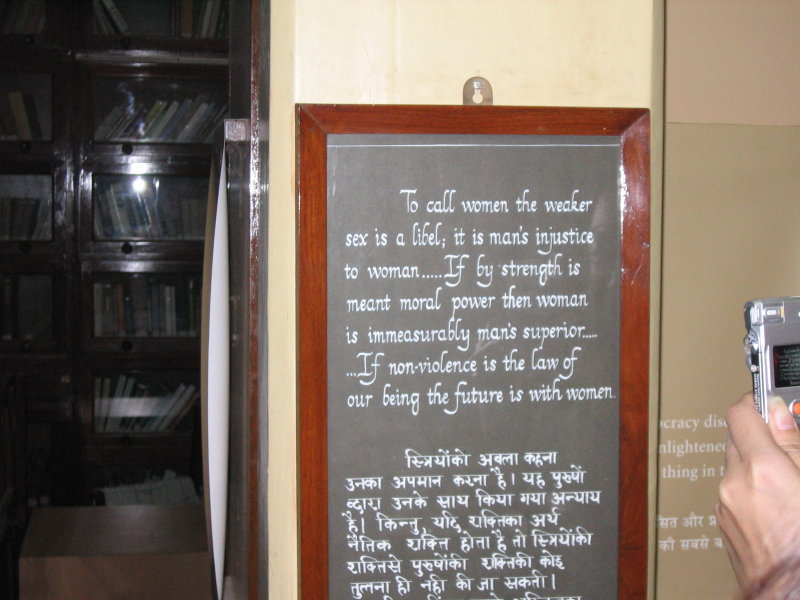 To call women the weaker
sex is a libel; it is man's injustice
to woman......If by strength is
meant moral power then woman
is immeasurably man's superior.....
...If non-violence is the law of
our being the future is with women.
स्त्रियोंको अबला कहना
उनका अपमान करना है। यह पुरुषों
व्दारा उनके साथ किया गया अन्याय
है। किन्तु, यदि शक्तिका अर्थ
नैतिक शक्ति होता है तो स्त्रियोंकी
शक्तिसे पुरुषोंकी शक्तिकी कोई
तुलना ही नही की जा सकती।
thing in
और
की सबसे